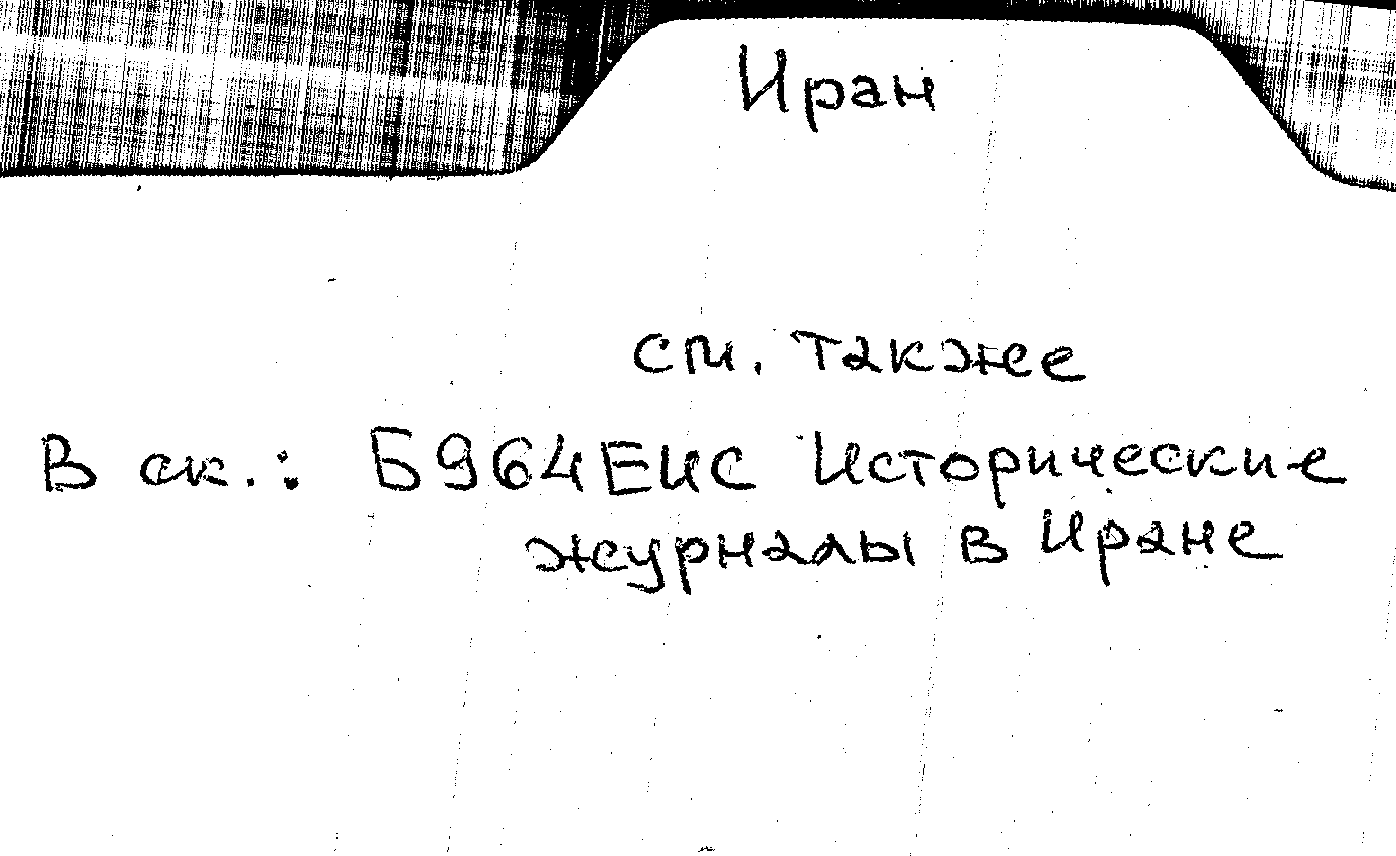 Иран
см. также
В ск.: Б964ЕИС Исторические
журналы в Иране